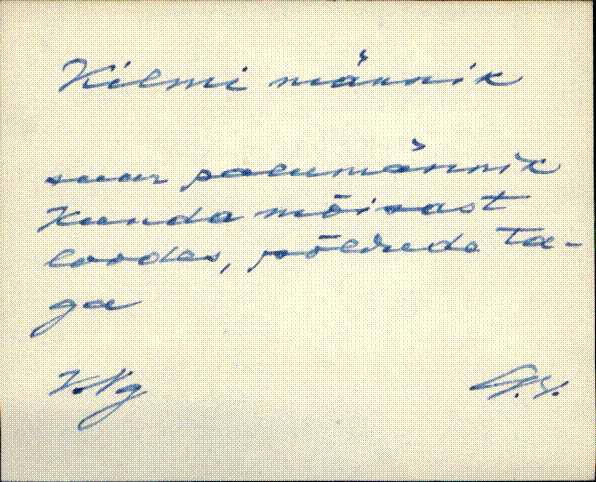 Kilmi männik
suur palumännik
Kunda mõisast
loodes, põldude ta-
ga
V.Ng